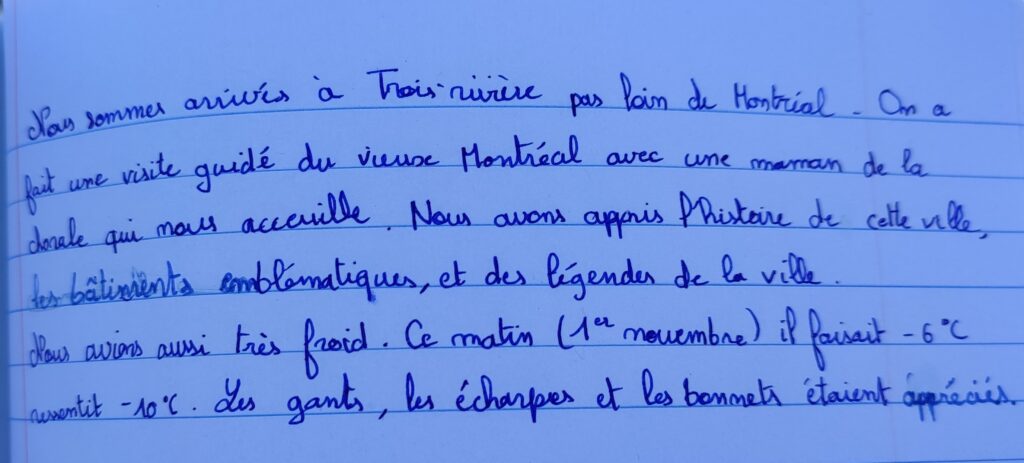 Nous sommes arrivés à Trois-rivière pas loin de Montréal. On a
fait une visite guidé du vieux Montréal avec une maman de la
chorale qui nous acceuille. Nous avons appris l'histoire de cette ville,
les bâtiments emblématiques, et des légendes de la ville.
Nous avions aussi très froid. Ce matin (1er novembre) il faisait -6°C
ressentit -10°C. Les gants, les écharpes et les bonnets étaient appréciés.